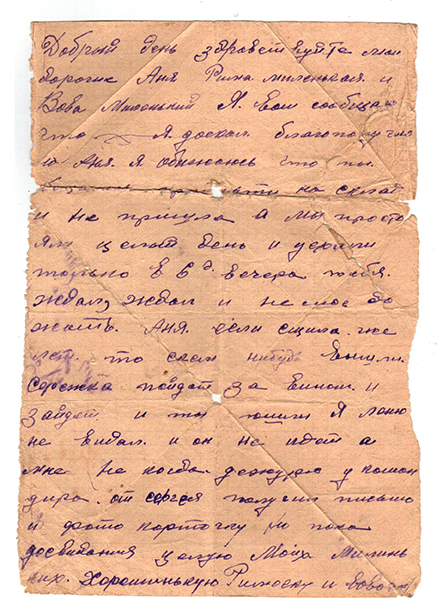 Добрий день здравствуйте мои
дорогие Аня Римка миленькая и
Вова Миленький Я. Вам сообщаю
что Я доехал благополучно
Аня. Я обижаюсь что ты.
на склад
и не пришла а мы просто
яли целый день и уехали
только в 6 д. вечера тебя.
ждал, ждал и не смог до
ждать. Аня. если сшила же
лет. то с кем нибудь вышли.
Сережка пойдет за вином. и
зайдет и ты пошли Я Маню
не видал. и он не идет а
мне не когда дежурю у коман
дира. от Сергея получил письмо
и фото карточку ну пока
досвидания целую Моих Милинь
ких. Хорошинькую Римочку и Вовочк